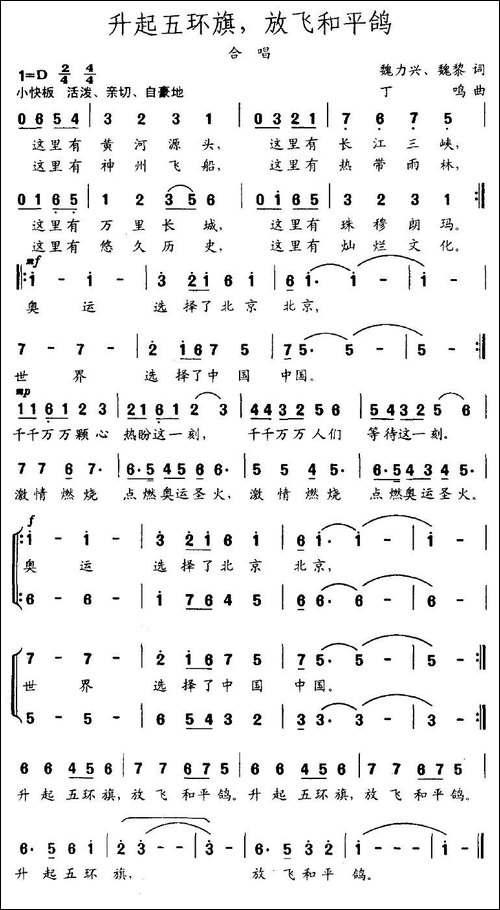 升起五环旗，放飞和平鸽
合 唱
1=D 2/4 4/4
魏力兴、魏黎 词
小快板 活泼、亲切、自豪地
丁 鸣 曲
0 6 5 4 | 3 2 3 1 | 0 3 2 1 | 7 6 7 5 |
这里有 黄 河 源 头， 这里有 长 江 三 峡，
这里有 神 州 飞 船， 这里有 热 带 雨 林，
0 1 6 5 | 1 2 3 5 6 | 0 1 6 5 | 3 2 3 1 - :|
这里有 万 里 长 城， 这里有 珠 穆 朗 玛。
这里有 悠 久 历 史， 这里有 灿 烂 文 化。
mf
|: 1 - 1 - | 3 2 1 6 1 | 6 1· 1 - | 1 - 1 - |
奥 运 选 择了北京 北京，
7 - 7 - | 2 1 6 7 5 | 7 5· 5 - | 5 - 5 - |
世 界 选 择了中国 中国。
mp
1 1 6 1 2 3 | 2 1 6 1 2 3 | 4 4 3 2 5 6 | 5 4 3 2 5 6 |
千千万万颗心 热盼这一刻， 千千万万人们 等待这一刻。
7 7 6 7· | 6· 5 4 5 6· | 7 7 6 7 5· | 6· 5 4 3 4 5· |
激情 燃烧 点燃奥运圣火， 激情 燃烧 点燃奥运圣火。
f
|: 1 - 1 - | 3 2 1 6 1 | 6 1· 1 - | 1 - 1 - |
奥 运 选 择了北京 北京，
|: 6 - 6 - | 1 7 6 4 5 | 6 6· 6 - | 6 - 6 - |
7 - 7 - | 2 1 6 7 5 | 7 5· 5 - | 5 - 5 - |
世 界 选 择了中国 中国。
5 - 5 - | 6 5 4 3 2 | 3 3· 3 - | 3 - 3 - |
6 6 4 5 6 | 7 7 6 7 5 | 6 6 4 5 6 | 7 7 6 7 5 |
升 起 五环旗， 放 飞 和平鸽。 升 起 五环旗， 放 飞 和平鸽。
6· 5 6 1 | 2 3 - 3 | 6· 5 6 2 | 1 - 1 - | 1 - 1 - :|
升 起 五 环 旗， 放飞和平 鸽。